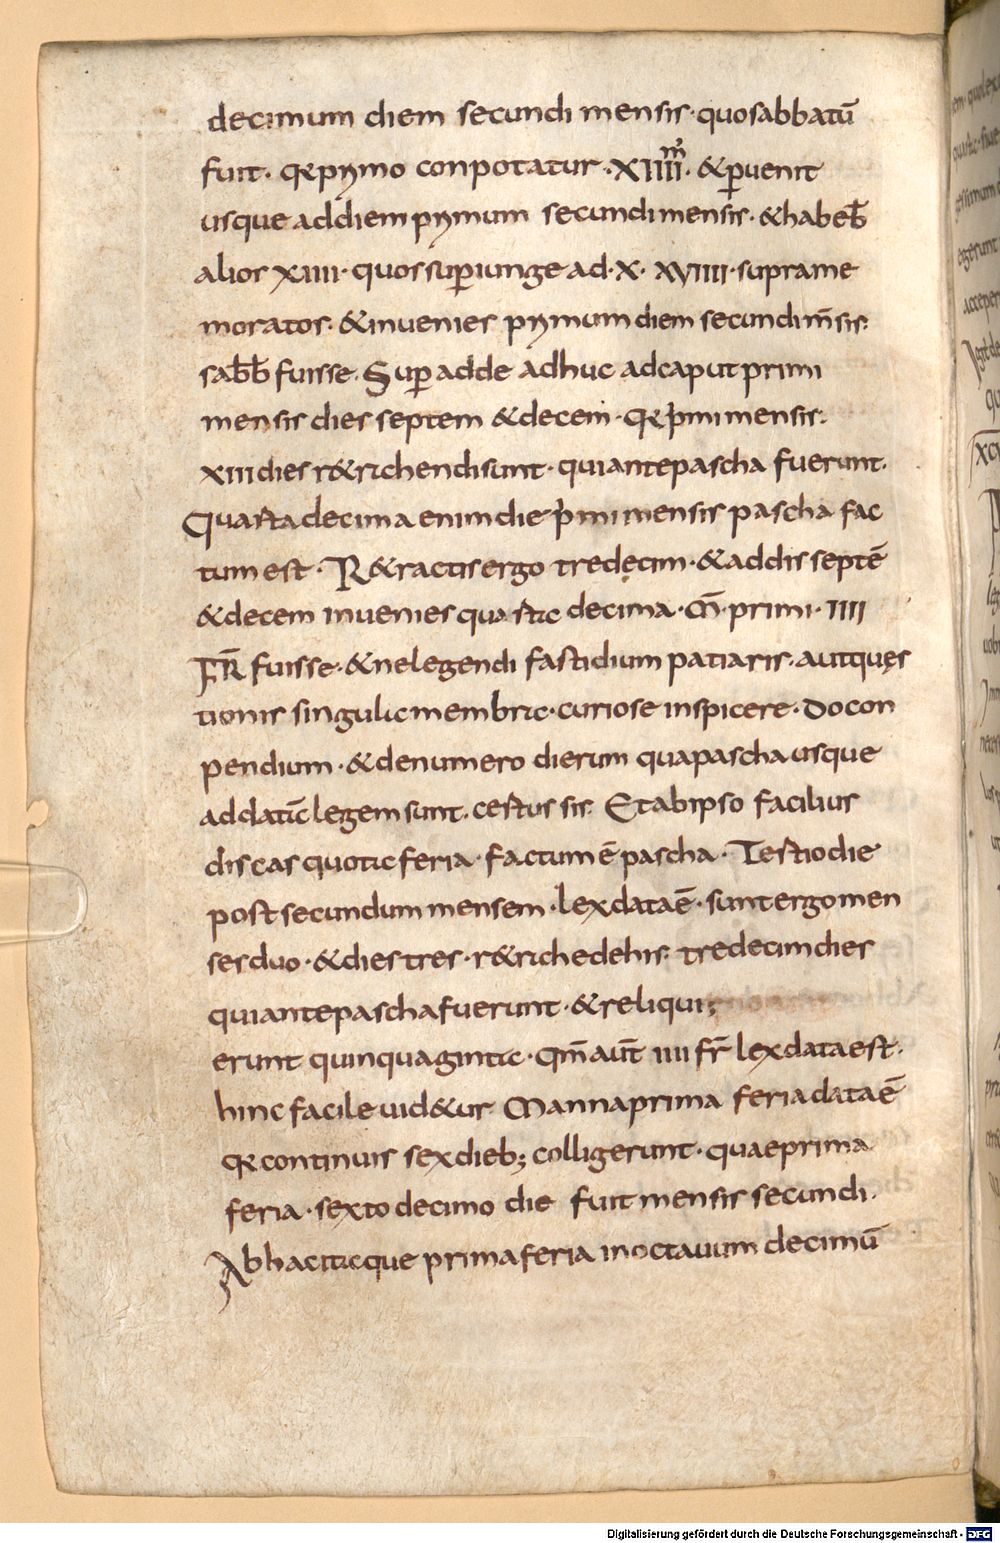 decimum diem secundi mensis· quo sabbatū
fuit· & primo conpotatur ·XIIII· & puenit
usque ad diem primum secundi mensis· & habeb̄
alios XIIII· quos sup iunge ad ·X· XVIIII· supra me
moratos· & inuenies primum diem secundi m̄sis·
sab̄b̄ fuisse· Sup adde adhuc ad caput primi
mensis dies septem & decem· & primi mensis·
XIII dies r&richendi sunt· qui ante pascha fuerunt·
Quarta decima enim die primi mensis pascha fac
tum est· R&ractis ergo tredecim· & addis septē
& decem inuenies quarta decima· m̄· primi· IIII
FR̄ fuisse· & ne legendi fastidium patiaris· aut quęs
tionis singula membra· curiose inspicere· do con
pendium· & de numero dierum qua pascha usque
ad data legem sunt· certus sis· Et ab ipso facilius
discas quota feria· factum ē pascha· Tertio die
post secundum mensem· lex data ē· sunt ergo men
ses duo· & dies tres· r&riche de his· tredecim dies
qui ante pascha fuerunt· & reliqui
erunt quinquaginta· qm̄ aut̄ IIII fr̄ lex data est·
hinc facile uid&ur Manna prima feria data ē
& continuis sex dieb; colligerunt· quae prima
feria· sexto decimo die fuit mensis secundi·
Ab hac itaque prima feria in octauum decimū
Digitalisierung gefördert durch die Deutsche Forschungsgemeinschaft - DFG